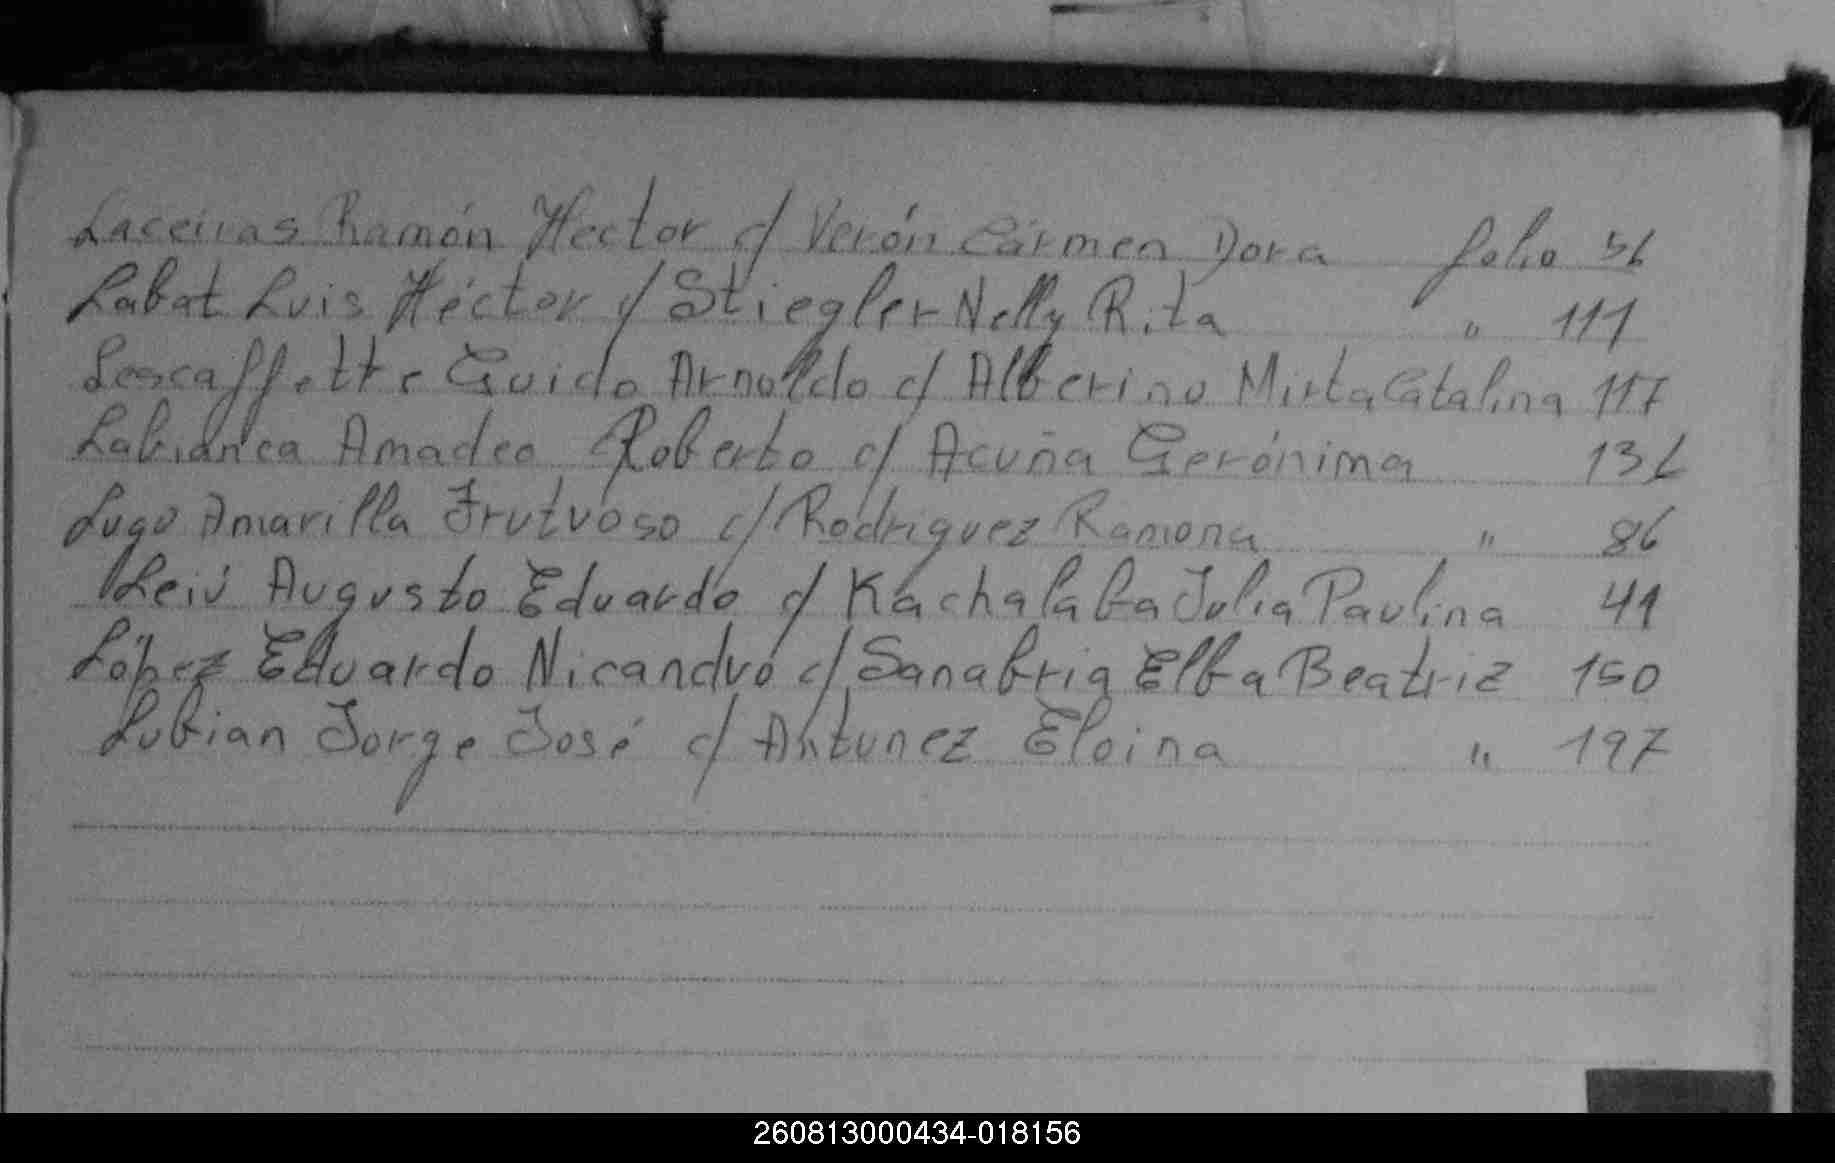 Laceiras Ramón Hector c/ Verón Cármen Dora folio 56
Labat Luis Héctor c/ Stiegler Nelly Rita " 111
Lescaffette Guido Arnoldo c/ Alberino Mirta Catalina 117
Labianca Amadeo Roberto c/ Acuña Gerónima 136
Lugo Amarilla Frutuoso c/ Rodriguez Ramona " 86
Leiú Augusto Eduardo c/ Kachalaba Julia Paulina 41
López Eduardo Nicandro c/ Sanabria Elba Beatriz 150
Lubian Jorge José c/ Antunez Eloina " 197
260813000434-018156